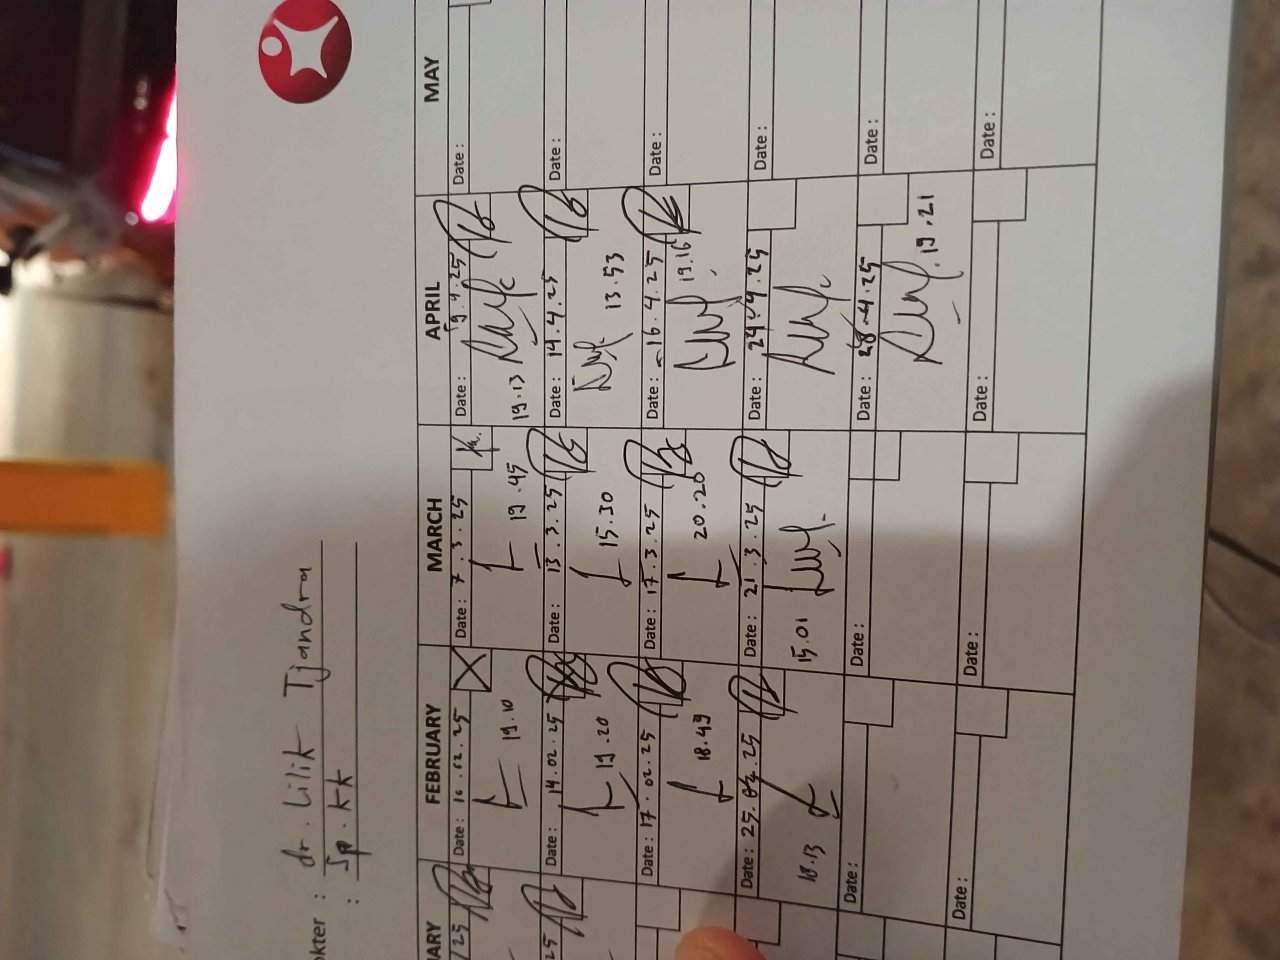 kter : dr. Lilik Tjandra
: Sp. KK
ARY
FEBRUARY
MARCH
APRIL
MAY
25
Date :
Date : 7.3.25
Date : 9.4.25
Date :
19.10
19.45
19.13
25
Date : 14.02.25
Date : 13.3.25
Date : 14.4.25
Date :
19.20
15.30
13.53
Date : 17.02.25
Date : 17.3.25
Date : 16.4.25
Date :
18.49
20.20
19.16
Date : 25.02.25
Date : 21.3.25
Date : 24.4.25
Date :
18.13
15.01
Date :
Date :
Date : 28-4.25
Date :
19.21
Date :
Date :
Date :
Date :